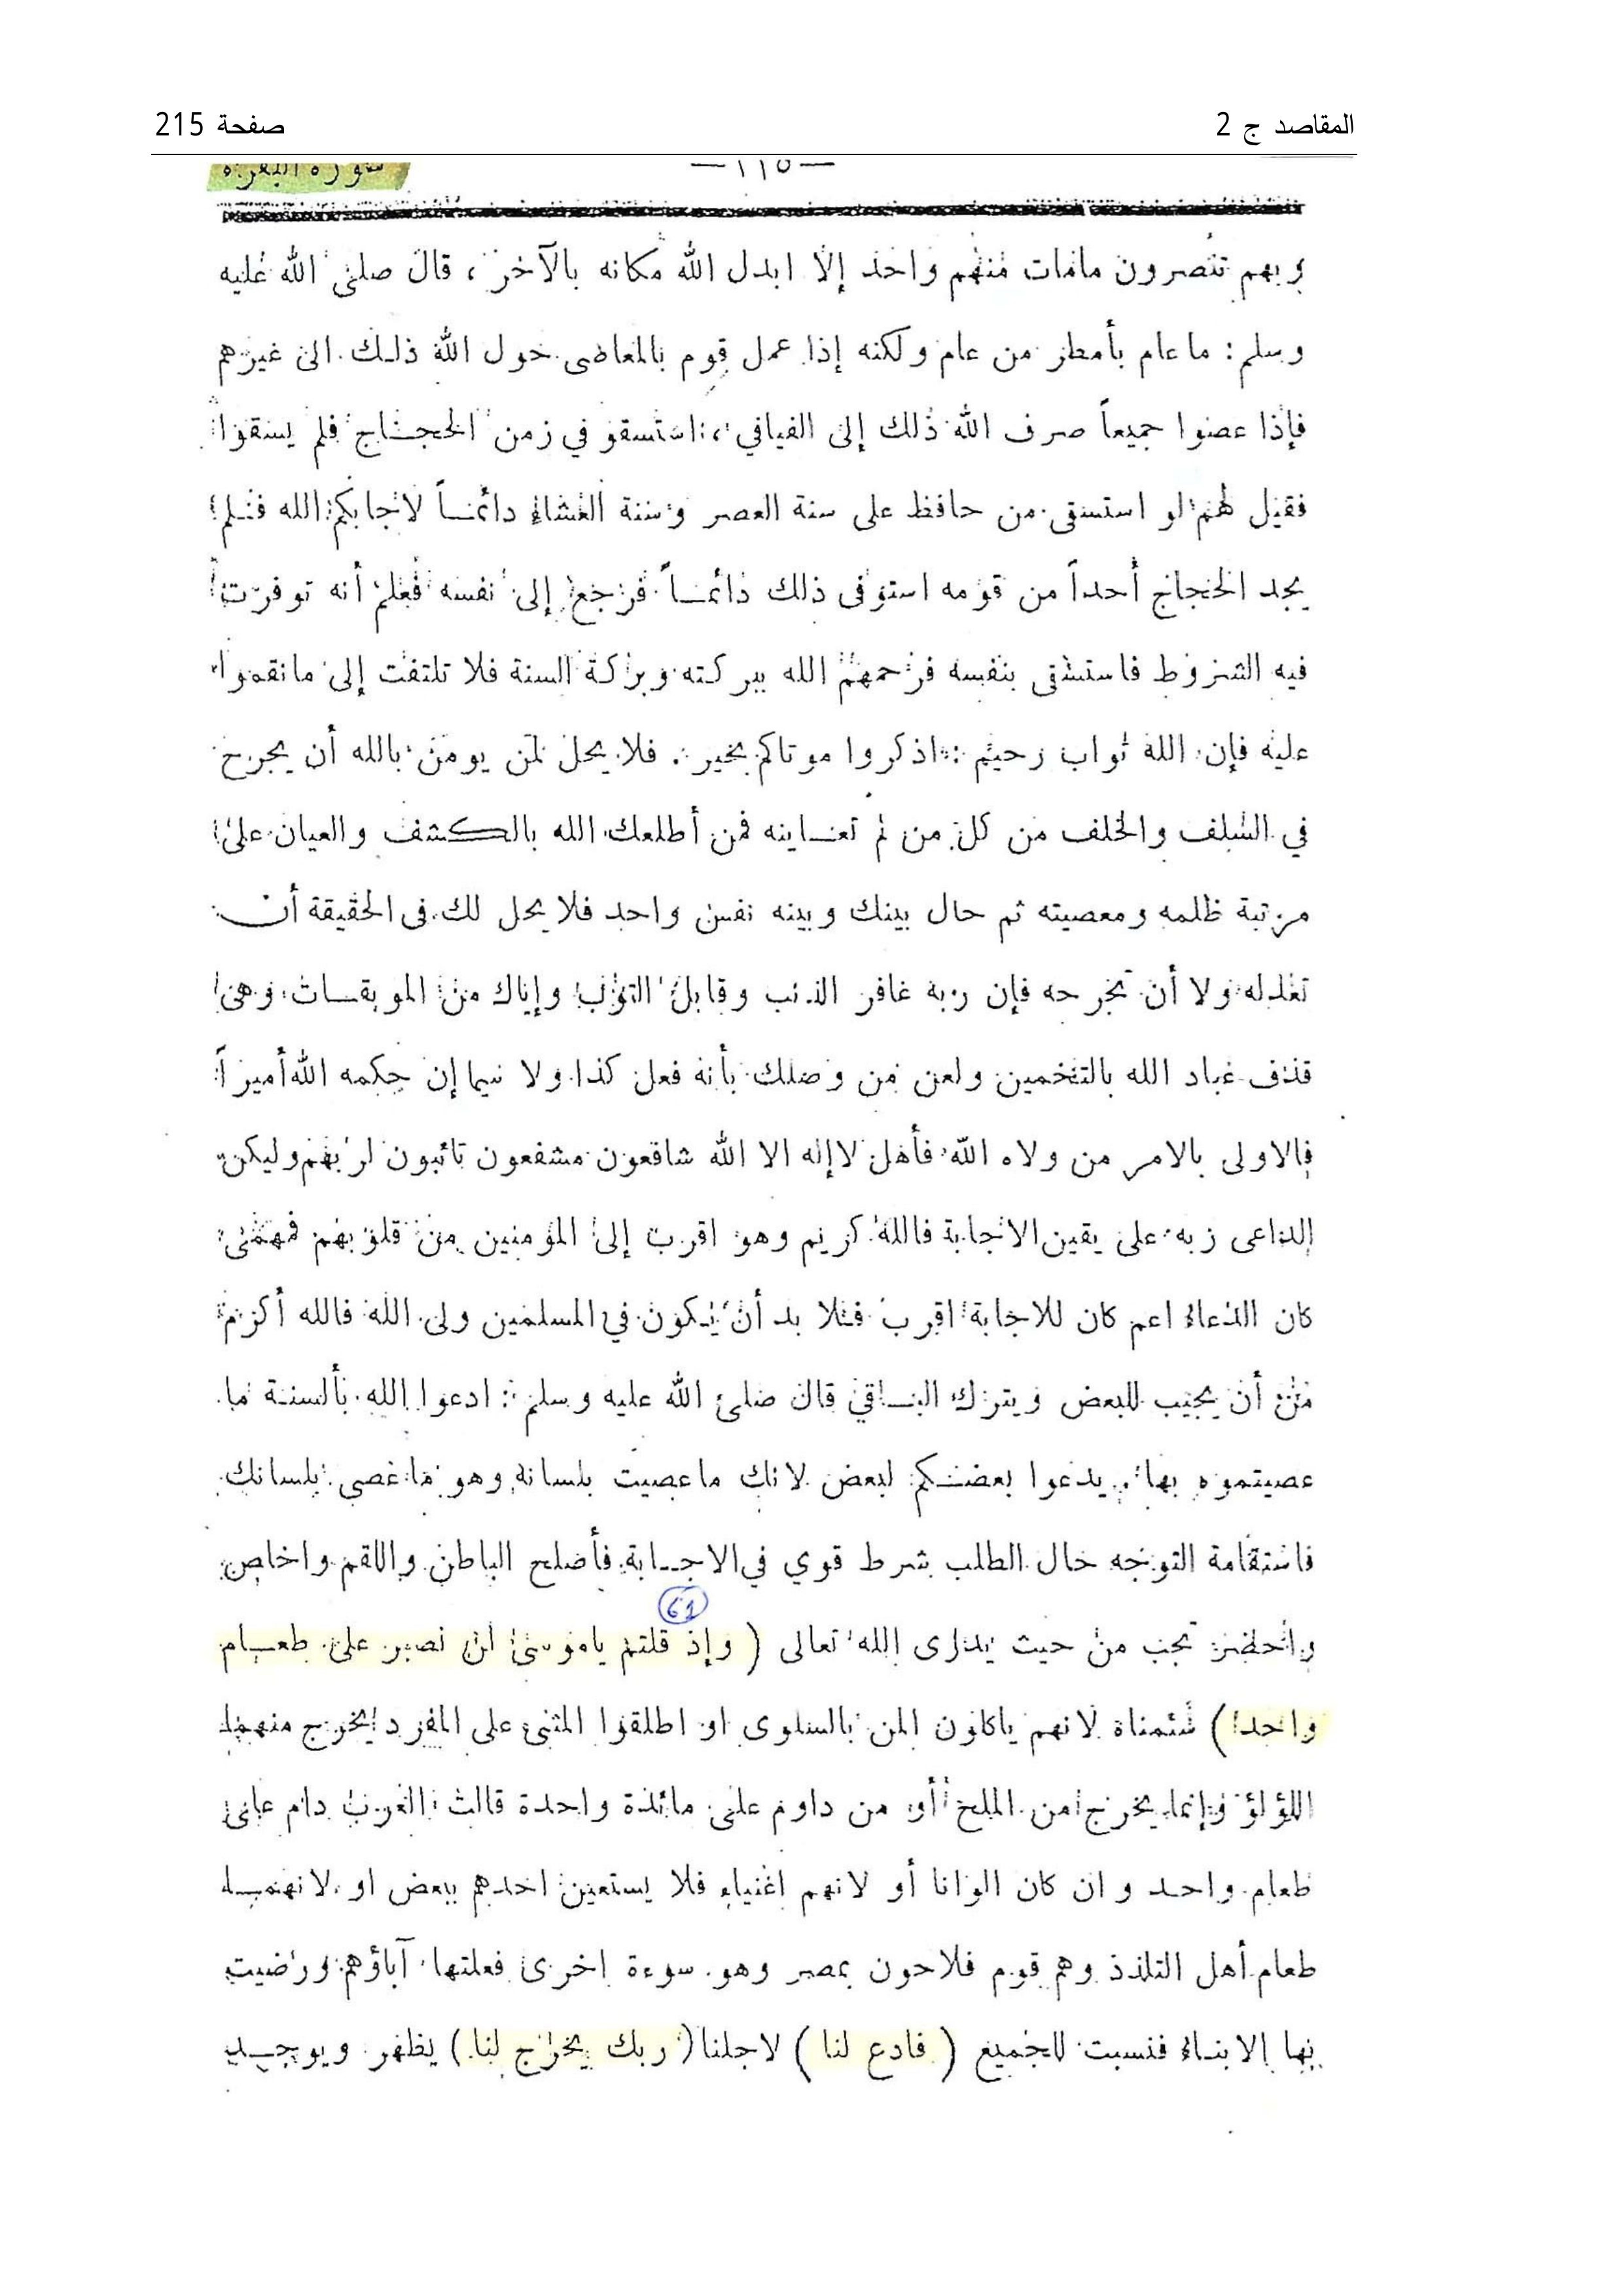 المقاصد ج 2
صفحة 215
سورة البقرة
—٢١٥—
وبهم تنصرون مامات منهم واحد إلا ابدل الله مكانه بالآخر ، قال صلى الله عليه
وسلم : ما عام بأمطر من عام ولكنه إذا عمل قوم بالمعاصى حول الله ذلك الى غيرهم
فإذا عصوا جميعاً صرف الله ذلك إلى الفيافي ، استسقو في زمن الحجاج فلم يسقوا
فقيل لهم لو استسقى من حافظ على سنة العصر وسنة العشاء دائماً لاجابكم الله فلم
يجد الحجاج أحداً من قومه استوفى ذلك دائماً فرجع إلى نفسه فعلم أنه توفرت
فيه الشروط فاستسقى بنفسه فرحمهم الله ببركته وبركة السنة فلا تلتفت إلى مانقموا
عليه فإن الله تواب رحيم : اذكروا موتاكم بخير . فلا يحل لمن يومن بالله أن يجرح
في السلف والخلف من كل من لم تعاينه فمن أطلعك الله بالكشف والعيان على
مرتبة ظلمه ومعصيته ثم حال بينك وبينه نفس واحد فلا يحل لك فى الحقيقة أن
تعدله ولا أن تجرحه فإن ربه غافر الذنب وقابل التوب وإياك من الموبقات وهى
قذف عباد الله بالتخمين ولعن من وصلك بأنه فعل كذا ولا سيما إن حكمه الله أميراً
فالاولى بالامر من ولاه الله فأهل لاإله الا الله شافعون مشفعون تائبون لربهم وليكن
الداعى ربه على يقين الاجابة فالله كريم وهو اقرب إلى المؤمنين من قلوبهم فهمتى
كان الدعاء اعم كان للاجابة اقرب فلا بد أن يكون في المسلمين ولى الله فالله أكرم
من أن يجيب للبعض ويترك الباقي قال صلى الله عليه وسلم : ادعوا الله بألسنة ما
عصيتموه بها . يدعوا بعضكم لبعض لانك ماعصيت بلسانه وهو ما عصى بلسانك
فاستقامة التوجه حال الطلب شرط قوي في الاجابة فأصلح الباطن واللقم واخلص
61
واحضر تجب من حيث يدرى الله تعالى ( وإذ قلتم ياموسى لن نصبر على طعام
واحد ) سئمناه لانهم ياكلون المن بالسلوى او اطلقوا المثنى على المفرد يخرج منهما
اللؤلؤ وإنما يخرج من الملح أو من داوم على مائدة واحدة قالت العرب دام على
طعام واحد وان كان الوانا أو لانهم اغنياء فلا يستعين احدهم ببعض او لانهما
طعام أهل التلذذ وهم قوم فلاحون بمصر وهو سوءة اخرى فعلتها آباؤهم ورضيت
بها الابناء فنسبت للجميع ( فادع لنا ) لاجلنا ( ربك يخرج لنا ) يظهر ويوجد